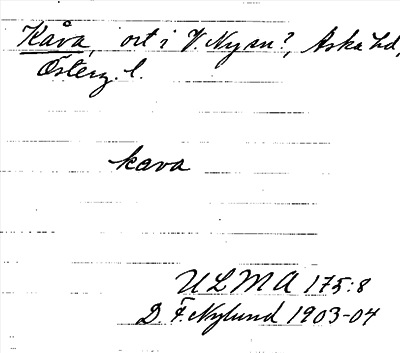 Kåva, ort i V. Ny sn?, Aska hd,
Österg. l.
kava
ULMA 175:8
D. F. Nylund 1903-04